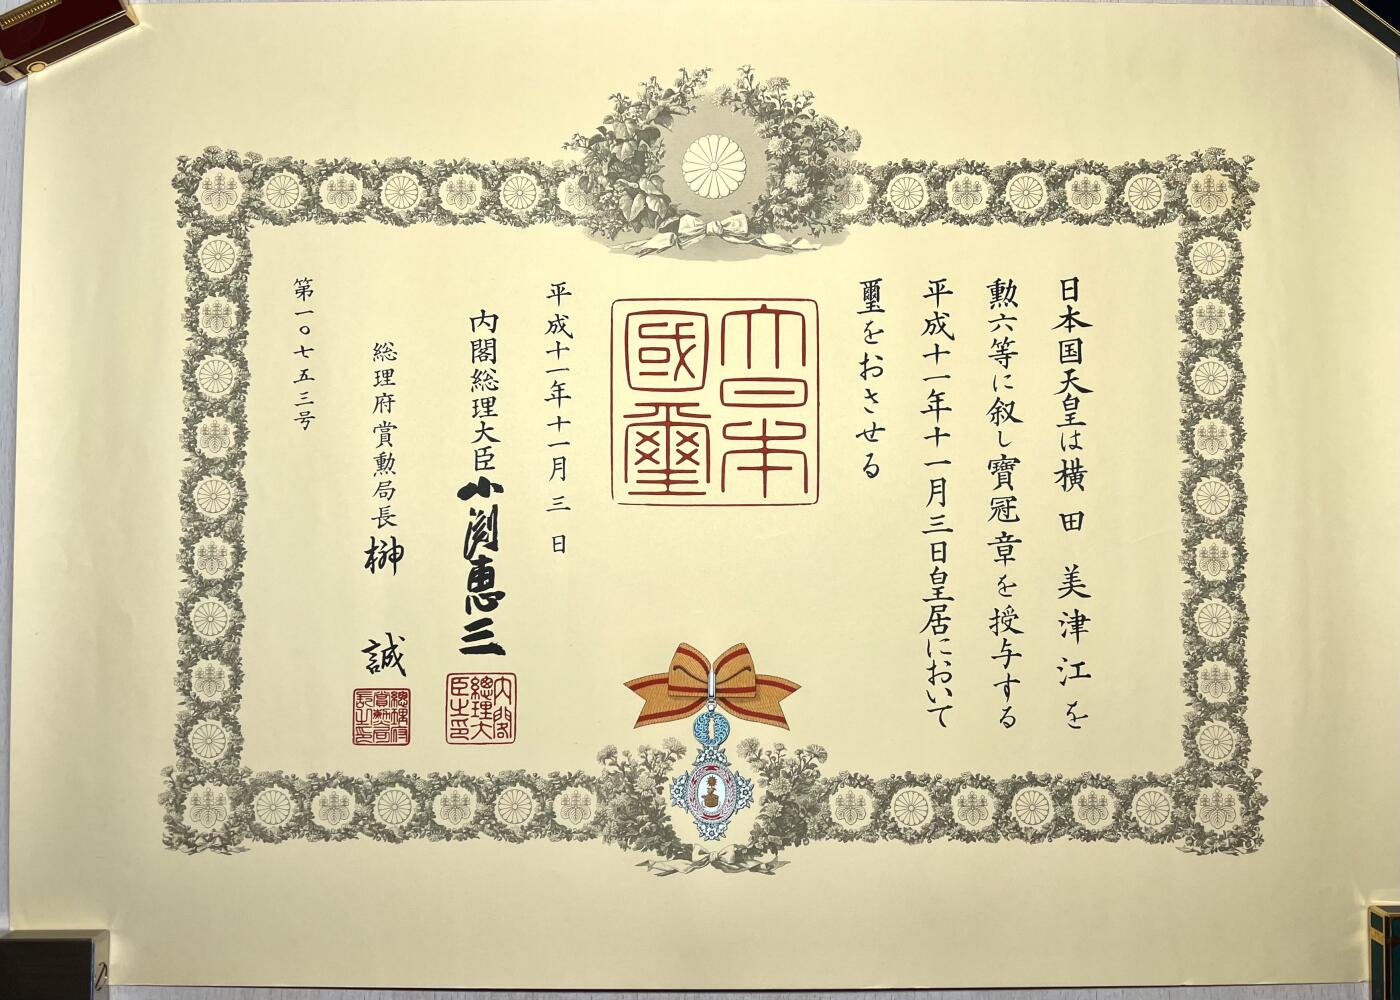 日本国天皇は横田美津江を
勲六等に叙し寶冠章を授与する
平成十一年十一月三日皇居において
璽をおさせる
大日本
國璽
平成十一年十一月三日
内閣総理大臣小渕恵三
内閣
總理大
臣之印
総理府賞勲局長榊誠
總理府
賞勲局
長之印
第一〇七五三号